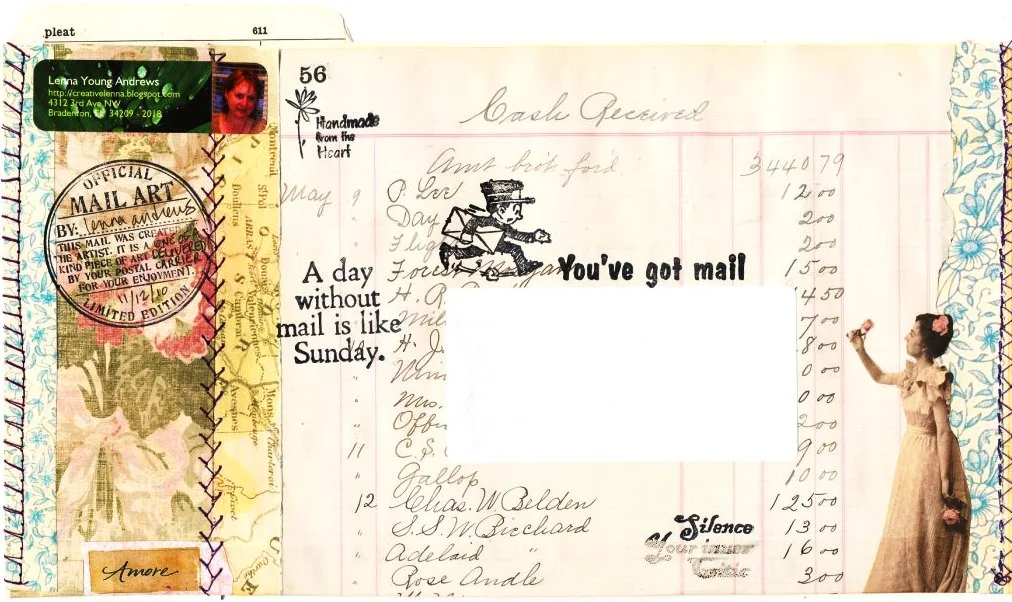 pleat 611
Lenna Young Andrews
http://creativelenna.blogspot.com
4312 3rd Ave NW
Bradenton, FL 34209 - 2018
OFFICIAL
MAIL ART
BY: lenna andrews
THIS MAIL WAS CREATED
THE ARTIST. IT IS A ONE OF
KIND PIECE OF ART DELIVERED
BY YOUR POSTAL CARRIER
FOR YOUR ENJOYMENT.
11/12/10
LIMITED EDITION
Amore
56
Handmade
from the
Heart
Cash Received
Amt brot ford. 344079
May 9 P. Lee 12 00
" Day 2 00
" 2 00
" 15 00
You've got mail
A day
without
mail is like
Sunday.
" H. 14 50
" 7 00
H. J. 8 00
"
" Mrs.
" 2 00
11 C. S. 9 00
" Gallop 10 00
12 Chas. W. Belden 125 00
" S. S. W. 13 00
" Adelaid " 16 00
" Rose Andle 3 00
Silence
Your inner
Critic